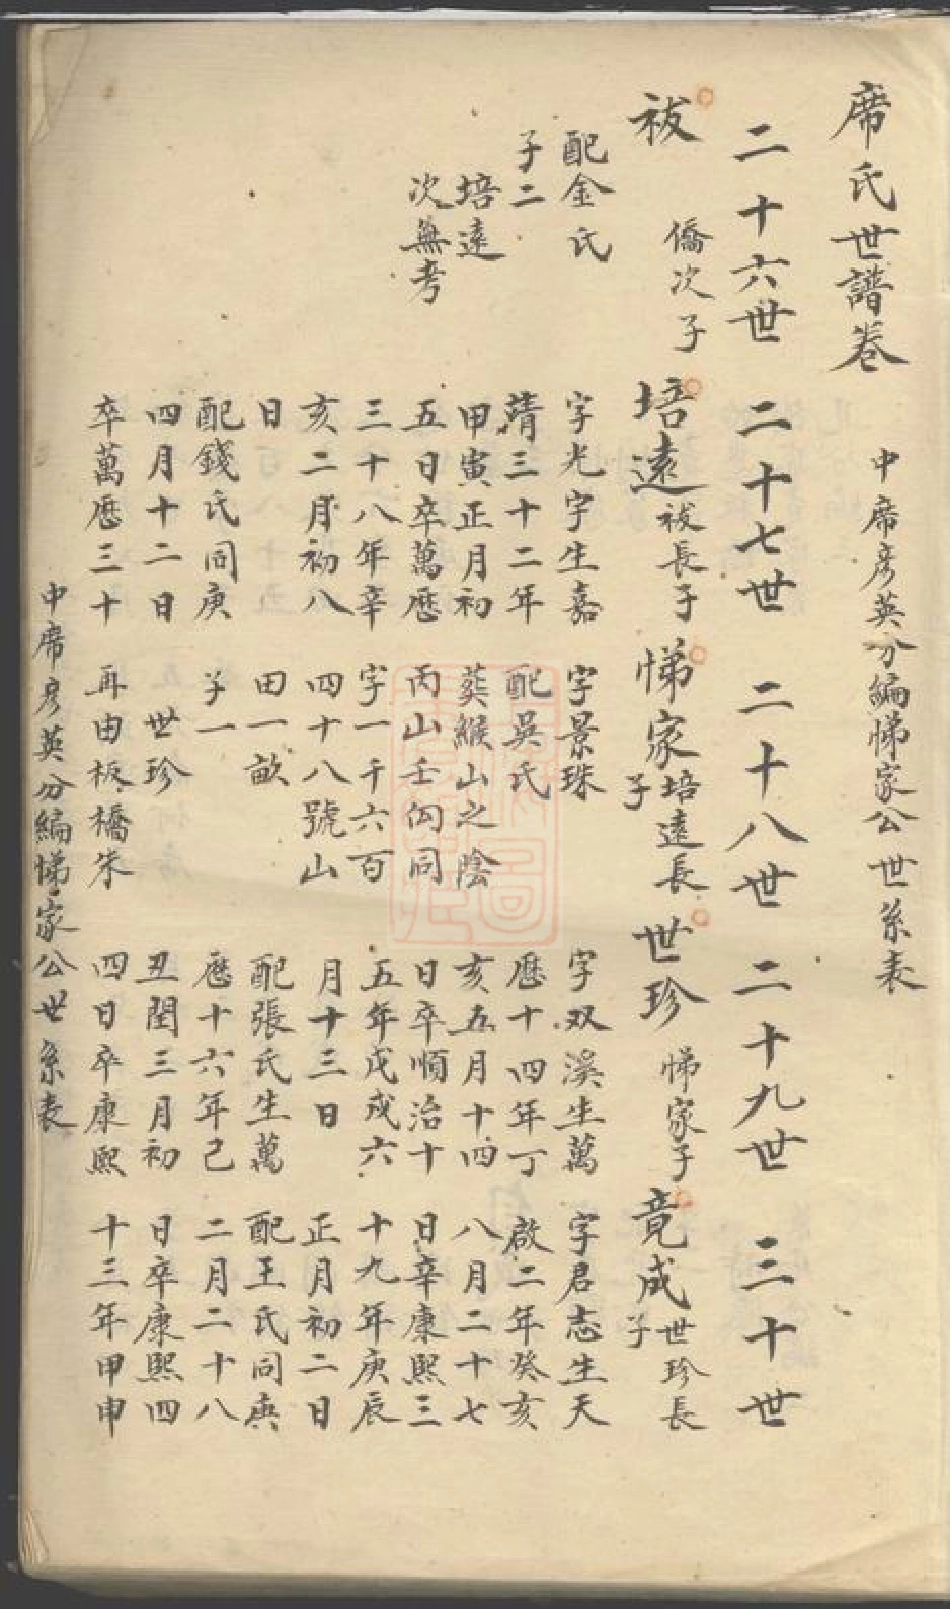 席氏世譜卷
中席彥英分編悌家公世系表
二十六世
二十七世
二十八世
二十九世
三十世
祓
僑次子
配金氏
子二
培遠
次無考
培遠
祓長子
字光宇生嘉
靖三十二年
甲寅正月初
五日卒萬厯
三十八年辛
亥二月初八
日
配錢氏同庚
四月十二日
卒萬厯三十
悌家
培遠長
子
字景珠
配吳氏
葬緱山之陰
丙山壬向同
字一千六百
四十八號山
田一畝
子一
世珍
再由板橋朱
世珍
悌家子
字双溪生萬
厯十四年丁
亥五月十四
日卒順治十
五年戊戌六
月十三日
配張氏生萬
厯十六年己
丑閏三月初
四日卒康熙
竟成
世珍長
子
字君志生天
啟二年癸亥
八月二十七
日卒康熙三
十九年庚辰
正月初二日
配王氏同庚
二月二十八
日卒康熙四
十三年甲申
中席彥英分編悌家公世系表